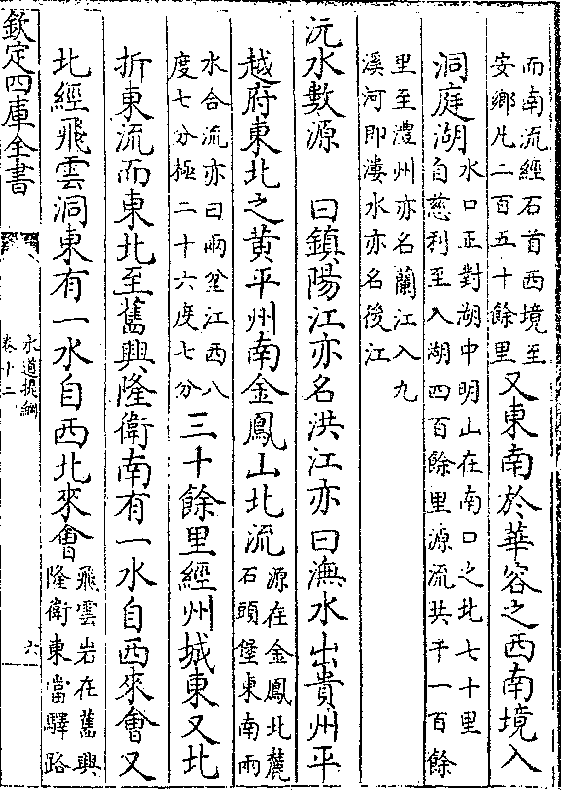 而南流經石首西境至
安鄉凡二百五十餘里
又東南於華容之西南境入
洞庭湖
水口正對湖中明山在南口之北七十里
自慈利至入湖四百餘里源流共千一百餘
里至澧州亦名蘭江入九
溪河即漊水亦名後江
沅水數源　曰鎮陽江亦名洪江亦曰潕水出貴州平
越府東北之黄平州南金鳳山北流
源在金鳳北麓
石頭堡東南兩
水合流亦曰兩岔江西八
度七分極二十六度七分
三十餘里經州城東又北
折東流而東北至舊興隆衛南有一水自西來會又
北經飛雲洞東有一水自西北來會
飛雲岩在舊興
隆衛東當驛路
欽定四庫全書
水道提綱
卷十二
六